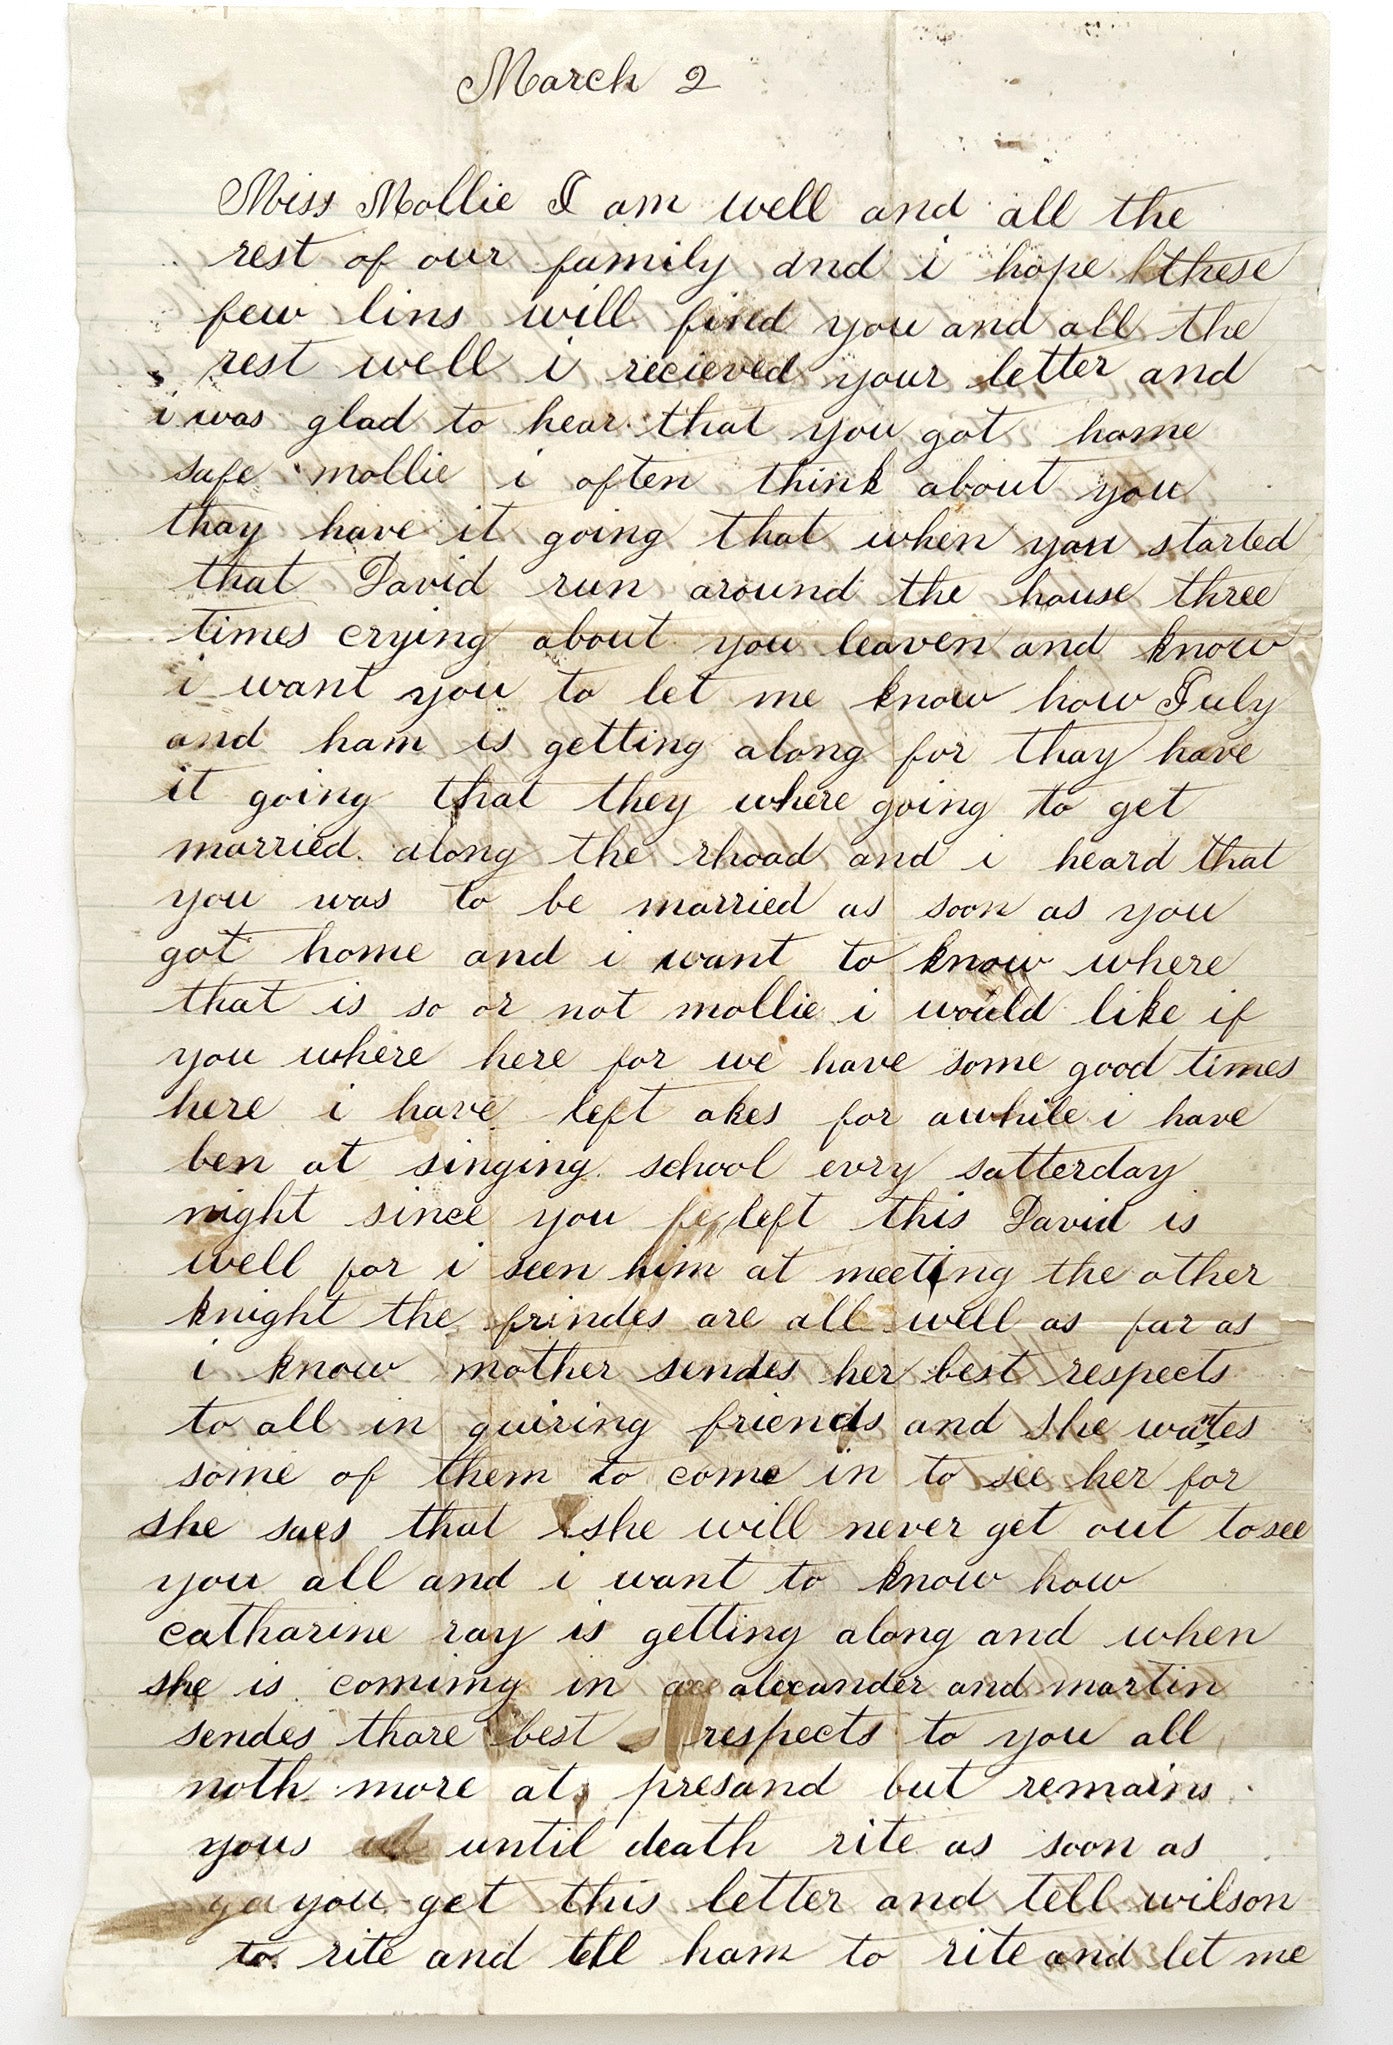 March 2
Miss Mollie I am well and all the
rest of our family and i hope these
few lins will find you and all the
rest well i recieved your letter and
i was glad to hear that you got home
safe mollie i often think about you
thay have it going that when you started
that David run around the house three
times crying about you leaven and know
i want you to let me know how July
and ham is getting along for thay have
it going that they where going to get
married along the rhoad and i heard that
you was to be married as soon as you
got home and i want to know where
that is so or not mollie i would like if
you where here for we have some good times
here i have left akes for awhile i have
ben at singing school evry satterday
night since you left this David is
well for i seen him at meeting the other
knight the frindes are all well as far as
i know mother sendes her best respects
to all in quiring friends and she wantes
some of them to come in to see her for
she saes that she will never get out to see
you all and i want to know how
catharine ray is getting along and when
she is comimg in alexander and martin
sendes thare best respects to you all
noth more at presand but remains
yous until death rite as soon as
you get this letter and tell wilson
to rite and tell ham to rite and let me